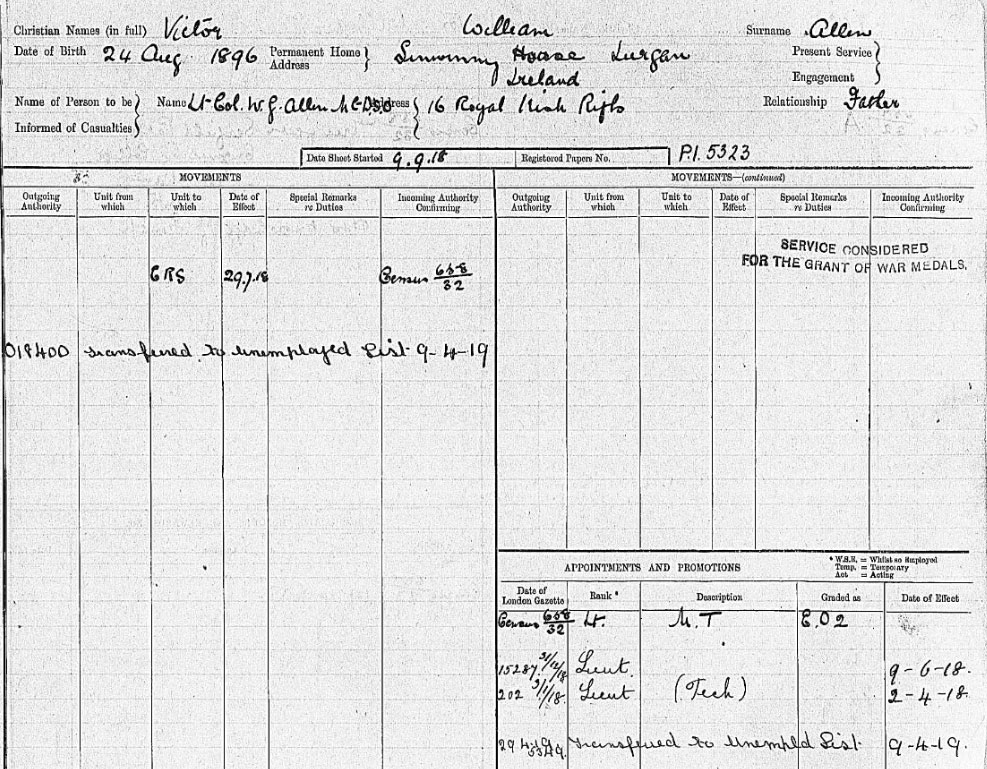 Christian Names (in full) Victor William Surname Allen
Date of Birth 24 Aug 1896 Permanent Home Address } House Lurgan Ireland Present Service } Engagement
Name of Person to be Informed of Casualties } Name Lt-Col. W. J. Allen Address { 16 Royal Irish Rifls Relationship Father
Date Sheet Started 9.9.18 Registered Papers No. P.I. 5323
MOVEMENTS
Outgoing Authority Unit from which Unit to which Date of Effect Special Remarks re Duties Incoming Authority Confirming
CRS 29.7.18 Census 658/32
018400 transferred to Unemployed List 9-4-19
MOVEMENTS—(continued)
Outgoing Authority Unit from which Unit to which Date of Effect Special Remarks re Duties Incoming Authority Confirming
SERVICE CONSIDERED
FOR THE GRANT OF WAR MEDALS.
APPOINTMENTS AND PROMOTIONS
* W.S.E. = Whilst so Employed
Temp. = Temporary
Act = Acting
Date of London Gazette Rank * Description Graded as Date of Effect
Census 658/32 Lt. M.T E.O2
15287 31/12/18 Lieut. 9-6-18.
202 Lieut (Tech) 2-4-18.
29 4-19 transferred to Unempld List 9-4-19.